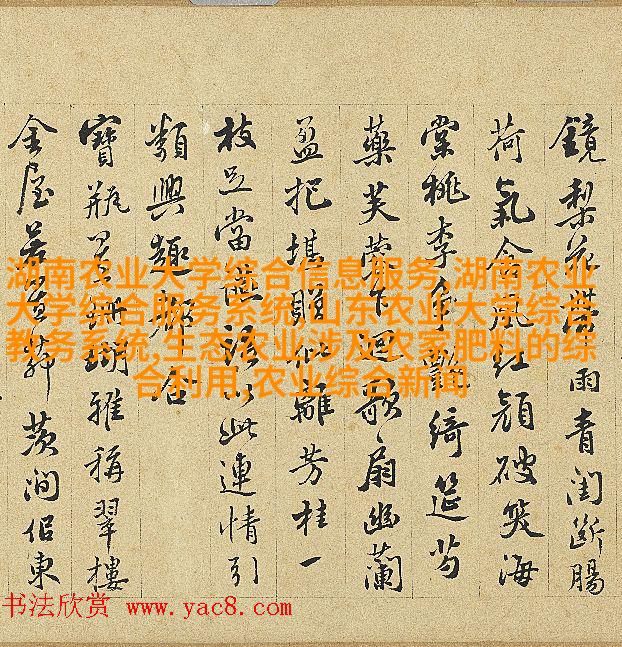 鏡梨花帶雨青閨斷腸
荷氣含風紅顏破笑海
棠桃李爭豔綺筵芍
藥芙蓉下迴歌扇幽蘭
盈把堪離芳桂一
枝足當以此連情引
類興趣都
寶瓶珊瑚雅稱翠樓
金屋若澗佀東
湖南农业大学综合信息服务,湖南农业
大学综合服务系统,山东农业大学综合
教务系统,生态农业涉及农家肥料的综
合利用,农业综合新闻
书法欣赏 www.yac8.com